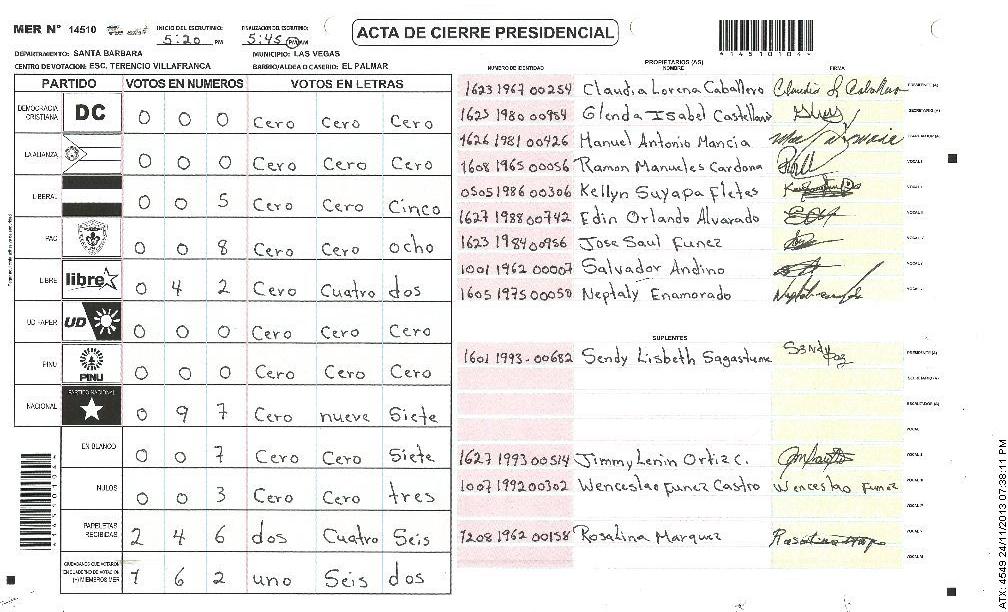 MER N° 14510 INICIO DEL ESCRUTINIO: 5:20 PM FINALIZACION DEL ESCRUTINIO: 5:45 PM
ACTA DE CIERRE PRESIDENCIAL
41451010
DEPARTAMENTO: SANTA BARBARA MUNICIPIO: LAS VEGAS
CENTRO DE VOTACION: ESC. TERENCIO VILLAFRANCA BARRIO/ALDEA O CASERIO: EL PALMAR
PARTIDO VOTOS EN NUMEROS VOTOS EN LETRAS
DEMOCRACIA CRISTIANA DC 0 0 0 Cero Cero Cero
LA ALIANZA 0 0 0 Cero Cero Cero
LIBERAL 0 0 5 Cero Cero Cinco
PAC 0 0 8 Cero Cero ocho
LIBRE libre 0 4 2 Cero Cuatro dos
UD FAPER UD 0 0 0 Cero Cero Cero
PINU PINU 0 0 0 Cero Cero Cero
NACIONAL PARTIDO NACIONAL 0 9 7 Cero nueve Siete
EN BLANCO 0 0 7 Cero Cero Siete
NULOS 0 0 3 Cero Cero tres
PAPELETAS RECIBIDAS 2 4 6 dos Cuatro Seis
CIUDADANOS QUE VOTARON EN CUADERNO DE VOTACION (+) MIEMBROS MER 1 6 2 uno Seis dos
PROPIETARIOS (AS)
NUMERO DE IDENTIDAD NOMBRE FIRMA
1623 1967 00254 Claudia Lorena Caballero Claudia L Caballero PRESIDENTE (A)
1623 1980 00954 Glenda Isabel Castellano SECRETARIO (A)
1626 1981 00426 Manuel Antonio Mancia
1608 1965 00056 Ramon Manueles Cardona VOCAL I
0505 1986 00306 Kellyn Suyapa Fletes
1627 1988 00742 Edin Orlando Alvarado
1623 1984 00956 Jose Saul Funez
1001 1962 00007 Salvador Andino
1605 1975 00050 Neptaly Enamorado
SUPLENTES
1601 1993-00682 Sendy Lisbeth Sagastume Sendy PRESIDENTE (A)
SECRETARIO (A)
ESCRUTADOR (A)
1627 1993 00514 Jimmy Lenin Ortiz C.
1007 1992 00302 Wenceslao Funez Castro Wenceslao Funez
1208 1962 00158 Rosalina Marquez
ATX: 4549 24/11/2013 07:38:11 PM